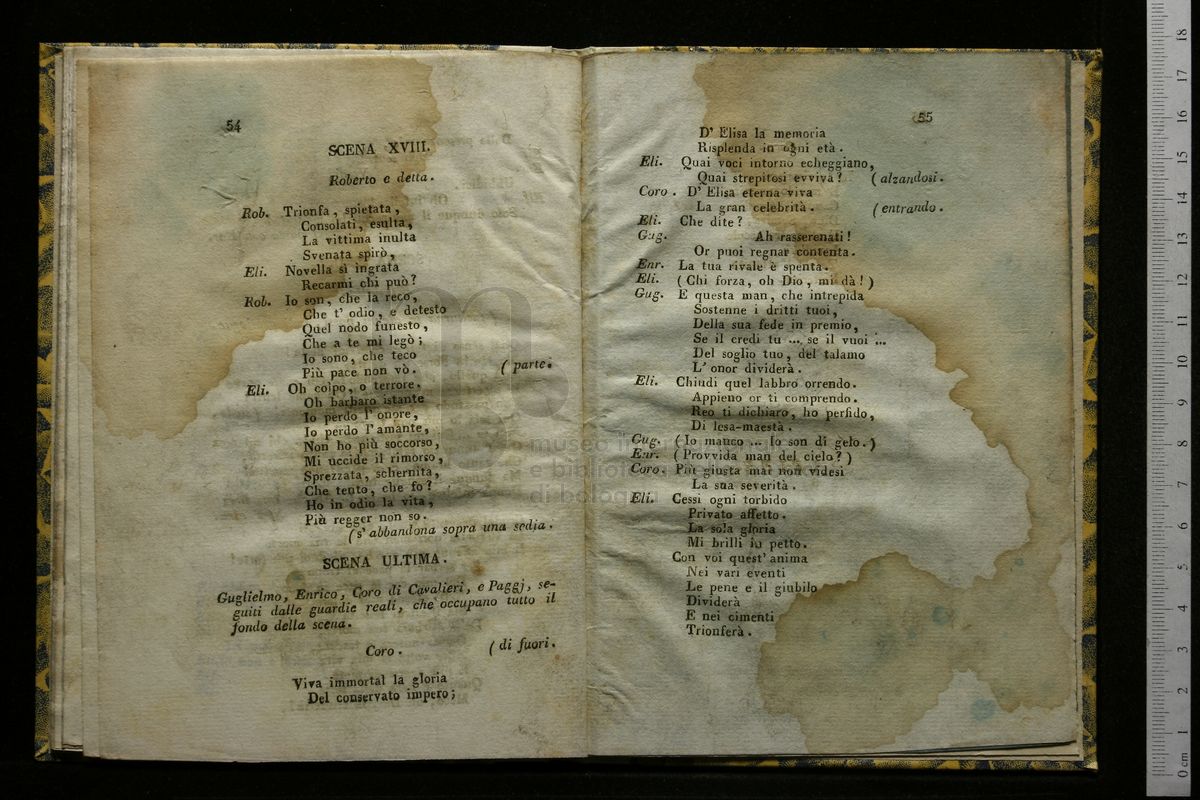 54
SCENA XVIII.
Roberto e detta.
Rob. Trionfa, spietata,
Consolati, esulta,
La vittima inulta
Svenata spirò,
Eli. Novella sì ingrata
Recarmi chi può?
Rob. Io son, che la reco,
Che t' odio, e detesto
Quel nodo funesto,
Che a te mi legò;
Io sono, che teco
Più pace non vò. (parte.
Eli. Oh colpo, o terrore.
Oh barbaro istante
Io perdo l' onore,
Io perdo l' amante,
Non ho più soccorso,
Mi uccide il rimorso,
Sprezzata, schernita,
Che tento, che fo?
Ho in odio la vita,
Più regger non so.
(s' abbandona sopra una sedia.
SCENA ULTIMA.
Guglielmo, Enrico, Coro di Cavalieri, e Paggj, se-
guiti dalle guardie reali, che occupano tutto il
fondo della scena.
Coro. (di fuori.
Viva immortal la gloria
Del conservato impero;
55
D' Elisa la memoria
Risplenda in ogni età.
Eli. Quai voci intorno echeggiano,
Quai strepitosi evviva? (alzandosi.
Coro. D' Elisa eterna viva
La gran celebrità. (entrando.
Eli. Che dite?
Gug. Ah rasserenati!
Or puoi regnar contenta.
Enr. La tua rivale è spenta.
Eli. (Chi forza, oh Dio, mi dà!)
Gug. E questa man, che intrepida
Sostenne i dritti tuoi,
Della sua fede in premio,
Se il credi tu ... se il vuoi ...
Del soglio tuo, del talamo
L' onor dividerà.
Eli. Chiudi quel labbro orrendo.
Appieno or ti comprendo.
Reo ti dichiaro, ho perfido,
Di lesa-maestà.
Gug. (Io manco ... Io son di gelo.)
Enr. (Provvida man del cielo?)
Coro. Più giusta mai non videsi
La sua severità.
Eli. Cessi ogni torbido
Privato affetto.
La sola gloria
Mi brilli in petto.
Con voi quest' anima
Nei vari eventi
Le pene e il giubilo
Dividerà
E nei cimenti
Trionferà.
museo in
e bibliote
di bologna
0 cm 1 2 3 4 5 6 7 8 9 10 11 12 13 14 15 16 17 18